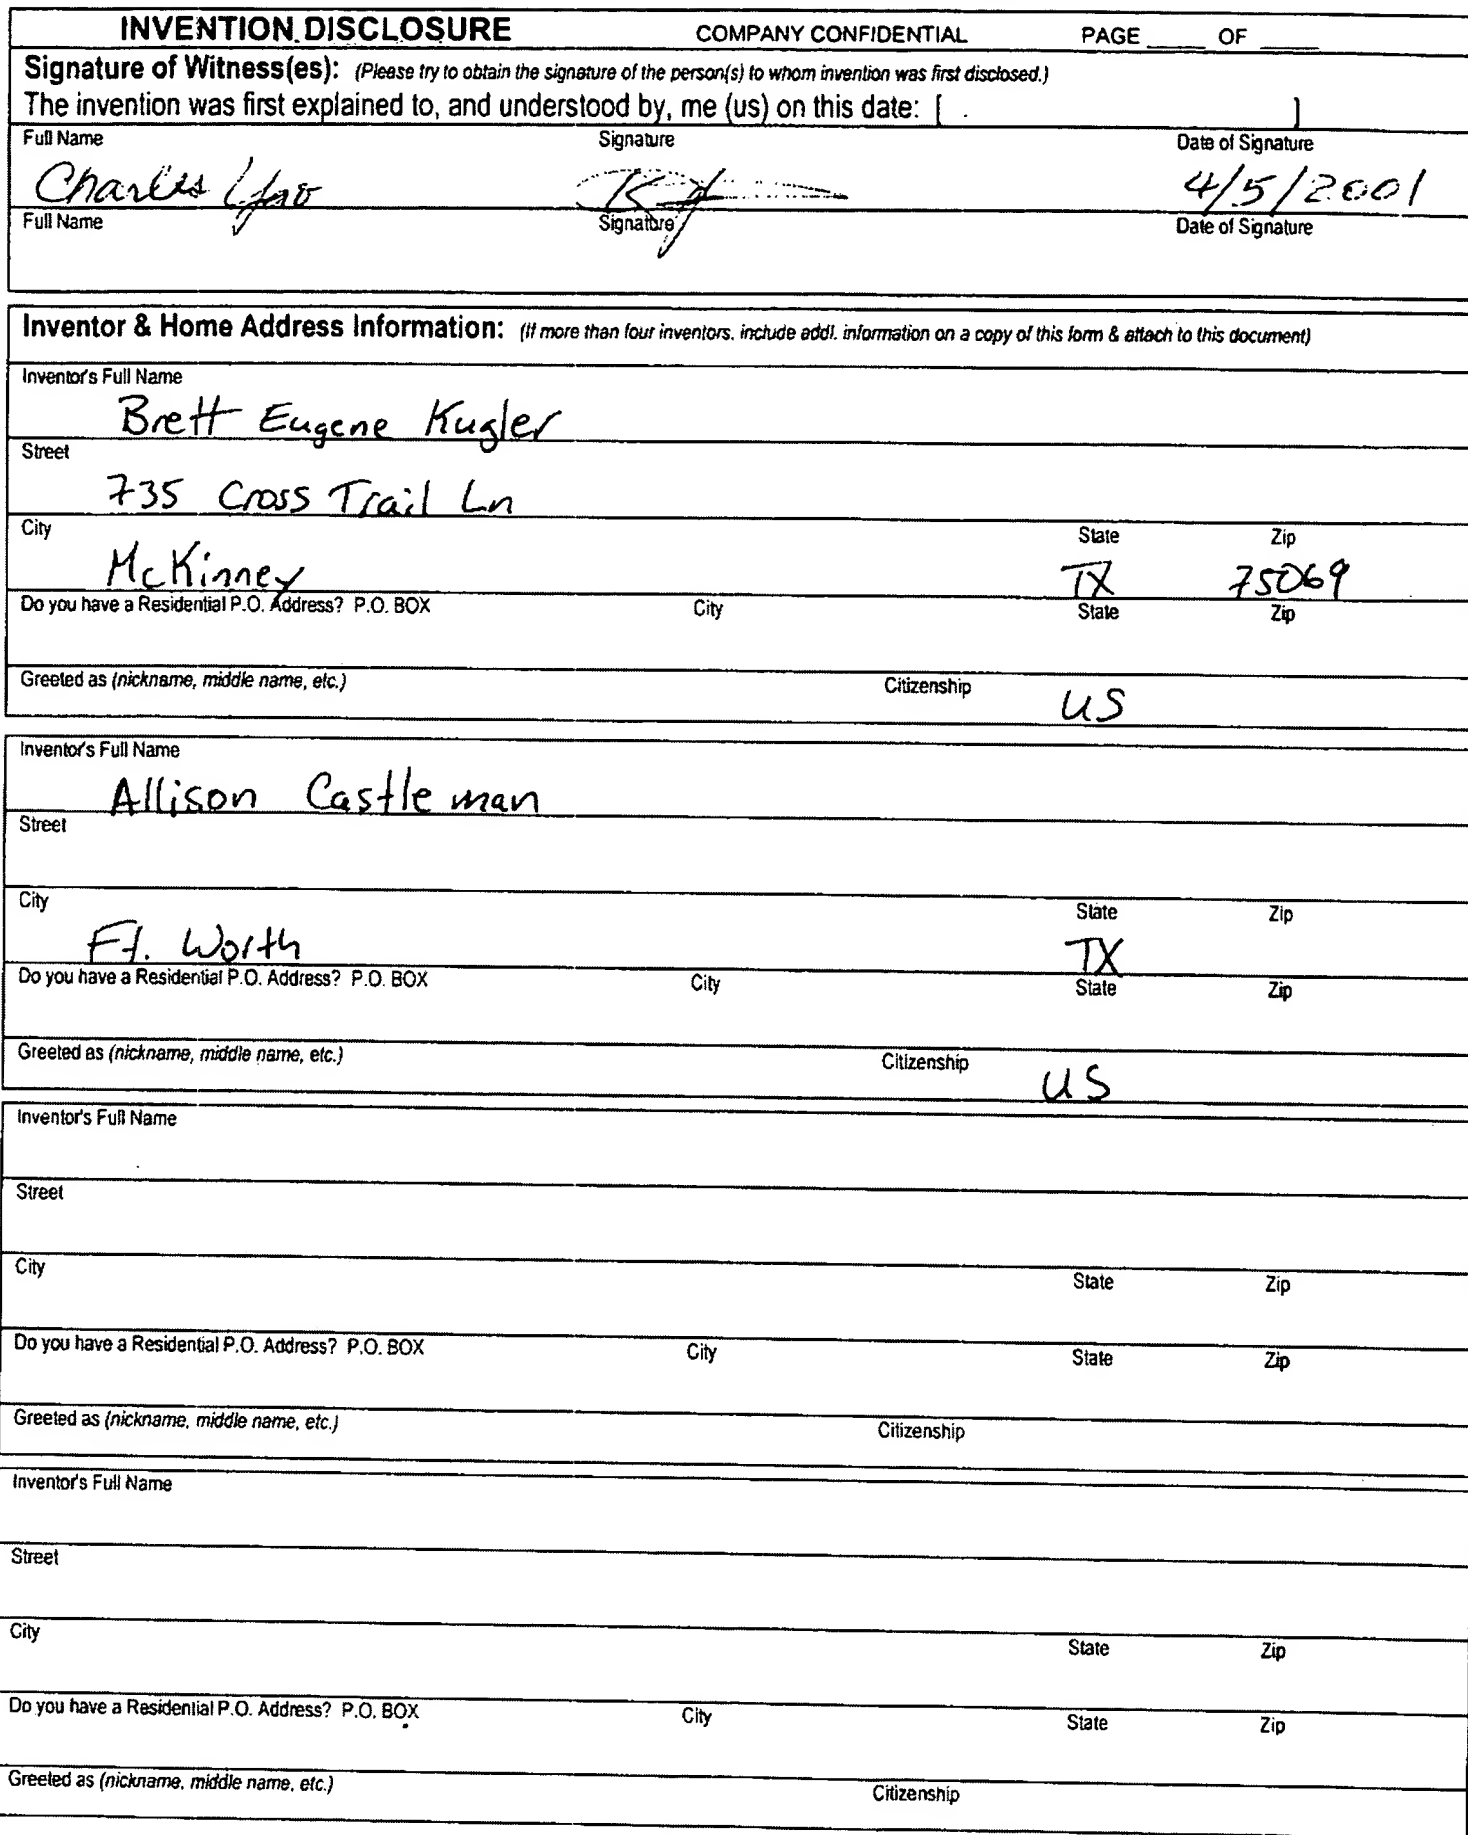 INVENTION DISCLOSURE COMPANY CONFIDENTIAL PAGE ____ OF ____
Signature of Witness(es): (Please try to obtain the signature of the person(s) to whom invention was first disclosed.)
The invention was first explained to, and understood by, me (us) on this date: [ ]
Full Name Signature Date of Signature
Charles 4/5/2001
Full Name Signature Date of Signature
Inventor & Home Address Information: (If more than four inventors, include addl. information on a copy of this form & attach to this document)
Inventor's Full Name
Brett Eugene Kugler
Street
735 Cross Trail Ln
City State Zip
McKinney TX 75069
Do you have a Residential P.O. Address? P.O. BOX City State Zip
Greeted as (nickname, middle name, etc.) Citizenship US
Inventor's Full Name
Allison Castleman
Street
City State Zip
Ft. Worth TX
Do you have a Residential P.O. Address? P.O. BOX City State Zip
Greeted as (nickname, middle name, etc.) Citizenship US
Inventor's Full Name
Street
City State Zip
Do you have a Residential P.O. Address? P.O. BOX City State Zip
Greeted as (nickname, middle name, etc.) Citizenship
Inventor's Full Name
Street
City State Zip
Do you have a Residential P.O. Address? P.O. BOX City State Zip
Greeted as (nickname, middle name, etc.) Citizenship